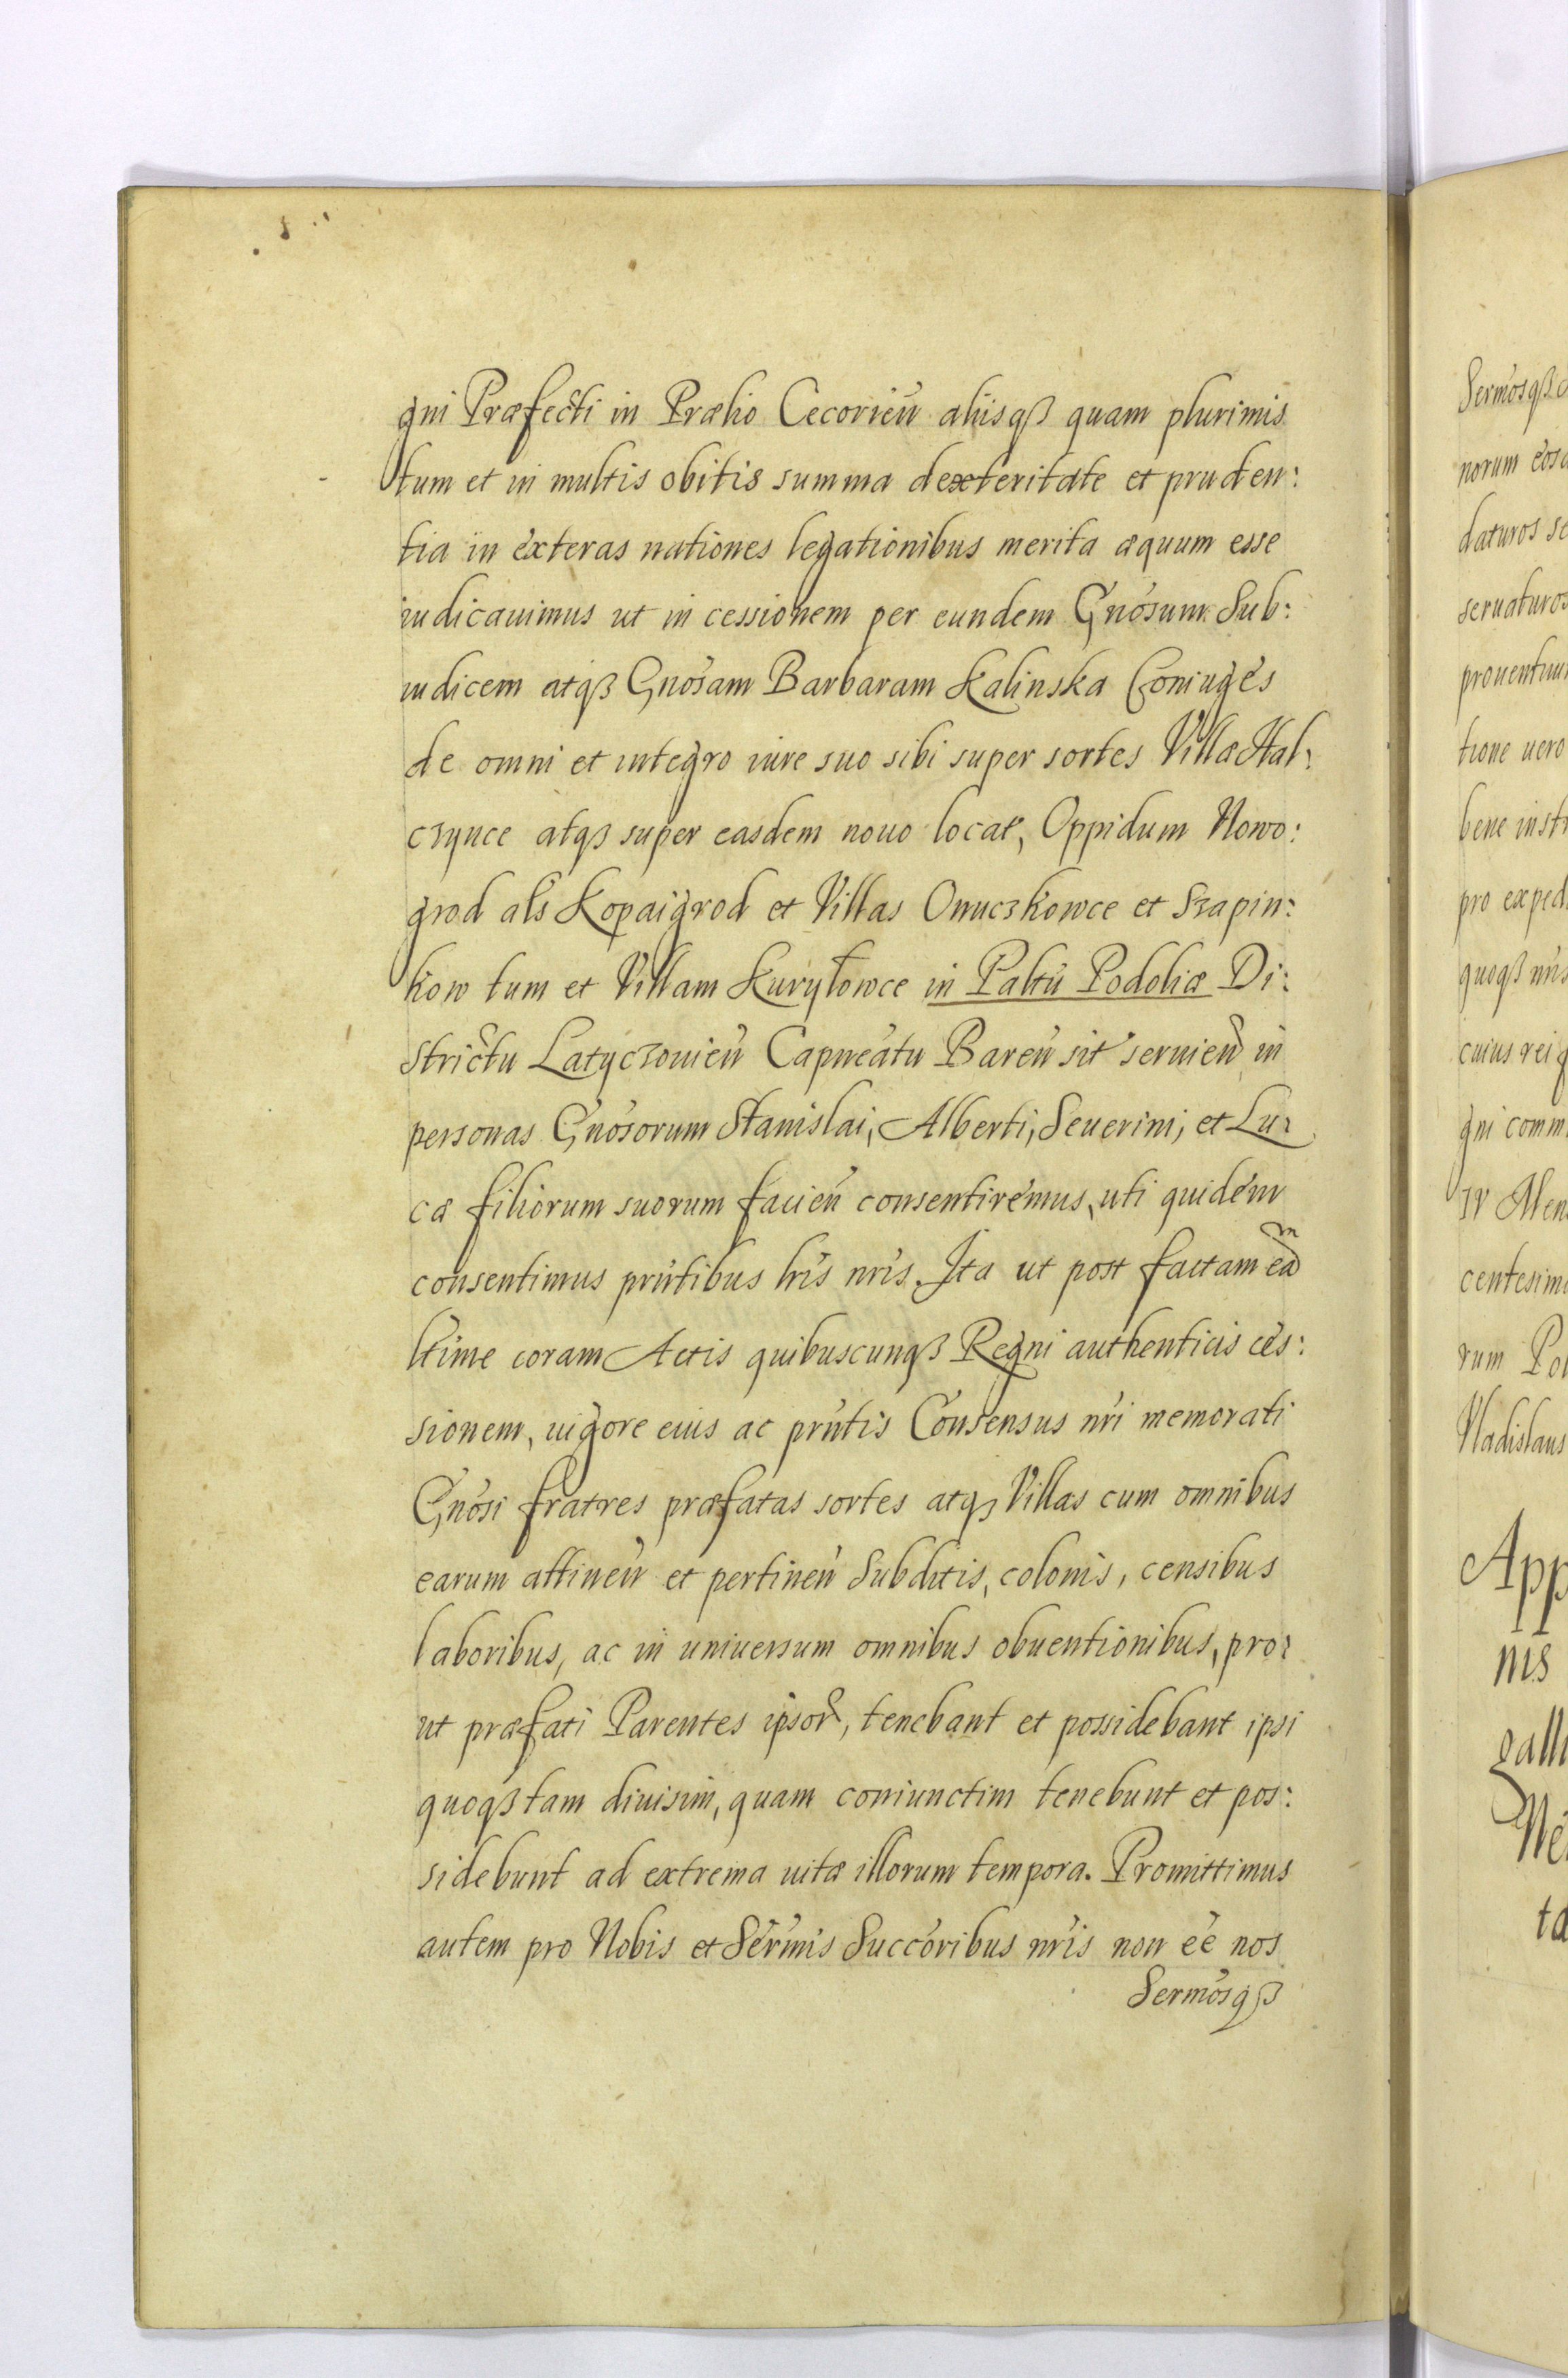 gni Præfecti in Prælio Cecorień alijsqꝫ quam plurimis
tum et in multis obitis summa dexteritate et pruden:
tia in exteras nationes legationibus merita æquum esse
iudicauimus ut in cessionem per eundem Gnosum Sub:
iudicem atqꝫ Gnosam Barbaram Kalinska Coniuges
de omni et integro iure suo sibi super sortes Villæ Hal:
czynce atqꝫ super easdem nouo locat, Oppidum Nowo:
grod als Kopaigrod et Villas Onuczkowce et Szapin:
kow tum et Villam Kuryłowce in Paltu Podoliæ Di:
strictu Latyczouień Capneatu Bareń sit seruień in
personas Gnosorum Stanislai, Alberti, Seuerini, et Lu:
cæ filiorum suorum facień consentiremus, uti quidem
consentimus prntibus lris nris. Ita ut post factam eam
ltime coram Actis quibuscunqꝫ Regni authenticis ces:
sionem, uigore eius ac prntis Consensus nri memorati
Gnosi fratres præfatas sortes atqꝫ Villas cum omnibus
earum attineń et pertineń Subditis, colonis, censibus
laboribus, ac in uniuersum omnibus obuentionibus, pro:
ut præfati Parentes ipsor, tenebant et possidebant ipsi
quoqꝫ tam diuisim, quam coniunctim tenebunt et pos:
sidebunt ad extrema uitæ illorum tempora. Promittimus
autem pro Nobis et Sermis Succoribus nris non ee nos
Sermosqꝫ
Sermosqꝫ
norum
daturos
seruaturos
tione uero
bene
pro
quoqꝫ
cuius rei
gni
IV
rum
Vladislaus